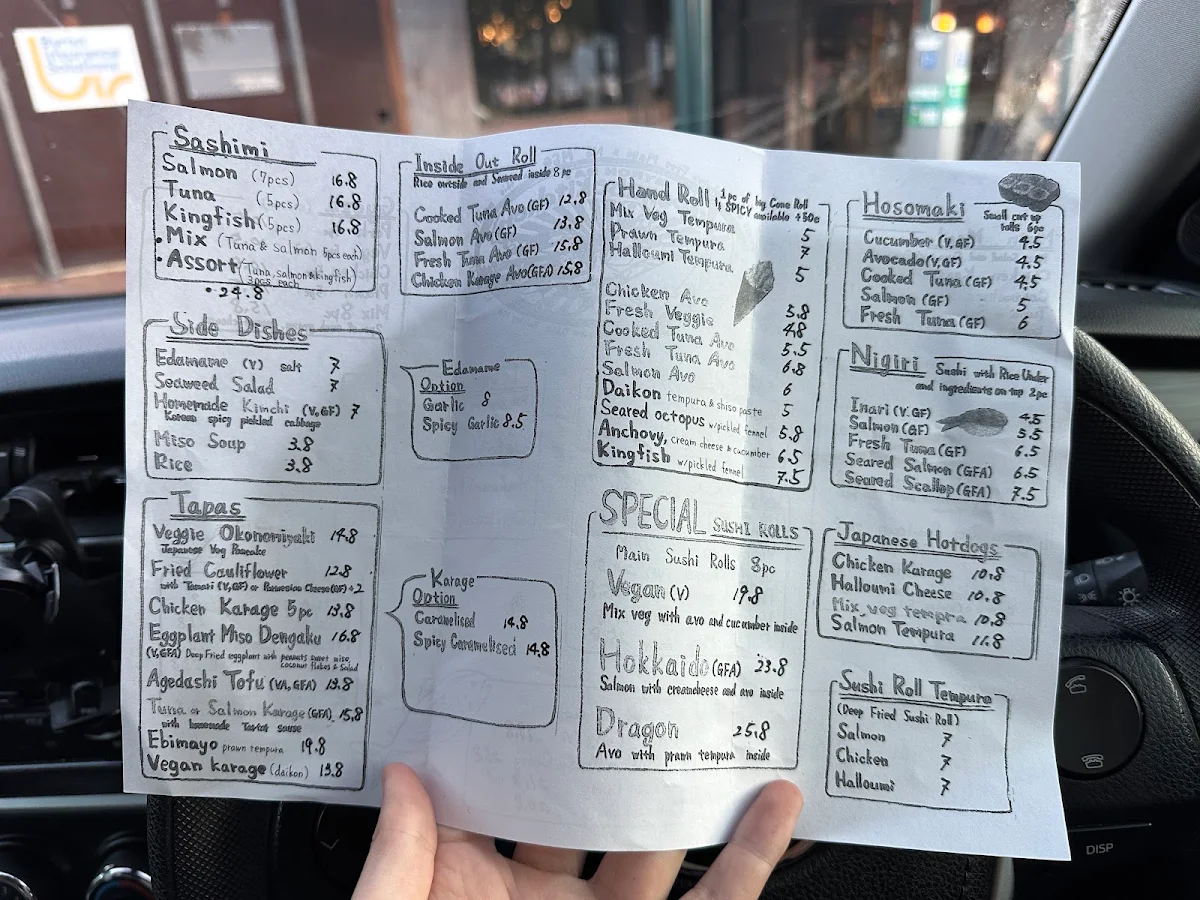 Sashimi
Salmon (7pcs) 16.8
Tuna (5pcs) 16.8
Kingfish (5pcs) 16.8
• Mix (Tuna & Salmon 5pcs each)
• Assort (Tuna, salmon & kingfish)
3pcs each
• 24.8
Side Dishes
Edamame (V) salt 7
Seaweed Salad 7
Homemade Kimchi (V,GF) 7
Korean spicy pickled cabbage
Miso Soup 3.8
Rice 3.8
Tapas
Veggie Okonomiyaki 14.8
Japanese Veg Pancake
Fried Cauliflower 12.8
with Tamari (V,GF) or Parmesan Cheese (GF) +2
Chicken Karage 5pc 13.8
Eggplant Miso Dengaku 16.8
(V,GFA) Deep Fried eggplant with peanuts sweet miso,
coconut flakes & Salad
Agedashi Tofu (VA,GFA) 13.8
Tuna or Salmon Karage (GFA) 15.8
with homemade Tartar sauce
Ebimayo prawn tempura 19.8
Vegan karage (daikon) 13.8
Inside Out Roll
Rice outside and Seaweed inside 8pc
Cooked Tuna Avo (GF) 12.8
Salmon Avo (GF) 13.8
Fresh Tuna Avo (GF) 15.8
Chicken Karage Avo (GFA) 15.8
Edamame
Option
Garlic 8
Spicy Garlic 8.5
Karage
Option
Caramelised 14.8
Spicy Caramelised 14.8
Hand Roll 1pc of big Cone Roll
SPICY available +50c
Mix Veg Tempura 5
Prawn Tempura 7
Halloumi Tempura 5
Chicken Avo 5.8
Fresh Veggie 4.8
Cooked Tuna Avo 5.5
Fresh Tuna Avo 6.8
Salmon Avo 6
Daikon tempura & shiso paste 5
Seared octopus w/pickled fennel 5.8
Anchovy, cream cheese & cucumber 6.5
Kingfish w/pickled fennel 7.5
SPECIAL SUSHI ROLLS
Main Sushi Rolls 8pc
Vegan (V) 19.8
Mix veg with avo and cucumber inside
Hokkaido (GFA) 23.8
Salmon with creamcheese and avo inside
Dragon 25.8
Avo with prawn tempura inside
Hosomaki Small cut up
rolls 6pc
Cucumber (V,GF) 4.5
Avocado (V,GF) 4.5
Cooked Tuna (GF) 4.5
Salmon (GF) 5
Fresh Tuna (GF) 6
Nigiri Sushi with Rice Under
and ingredients on top 2pc
Inari (V.GF) 4.5
Salmon (GF) 5.5
Fresh Tuna (GF) 6.5
Seared Salmon (GFA) 6.5
Seared Scallop (GFA) 7.5
Japanese Hotdogs
Chicken Karage 10.8
Halloumi Cheese 10.8
Mix veg tempra 10.8
Salmon Tempura 11.8
Sushi Roll Tempura
(Deep Fried Sushi Roll)
Salmon 7
Chicken 7
Halloumi 7
DISP